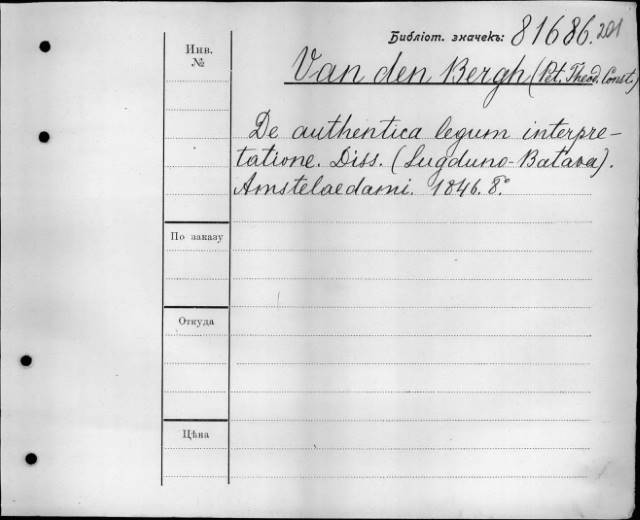 Библіот. значекъ: 81686.201
Инв. №
Van den Bergh (Pet. Theod. Const.)
De authentica legum interpre-
tatione. Diss. (Lugduno-Batava).
Amstelaedami. 1846. 8°
По заказу
Откуда
Цѣна